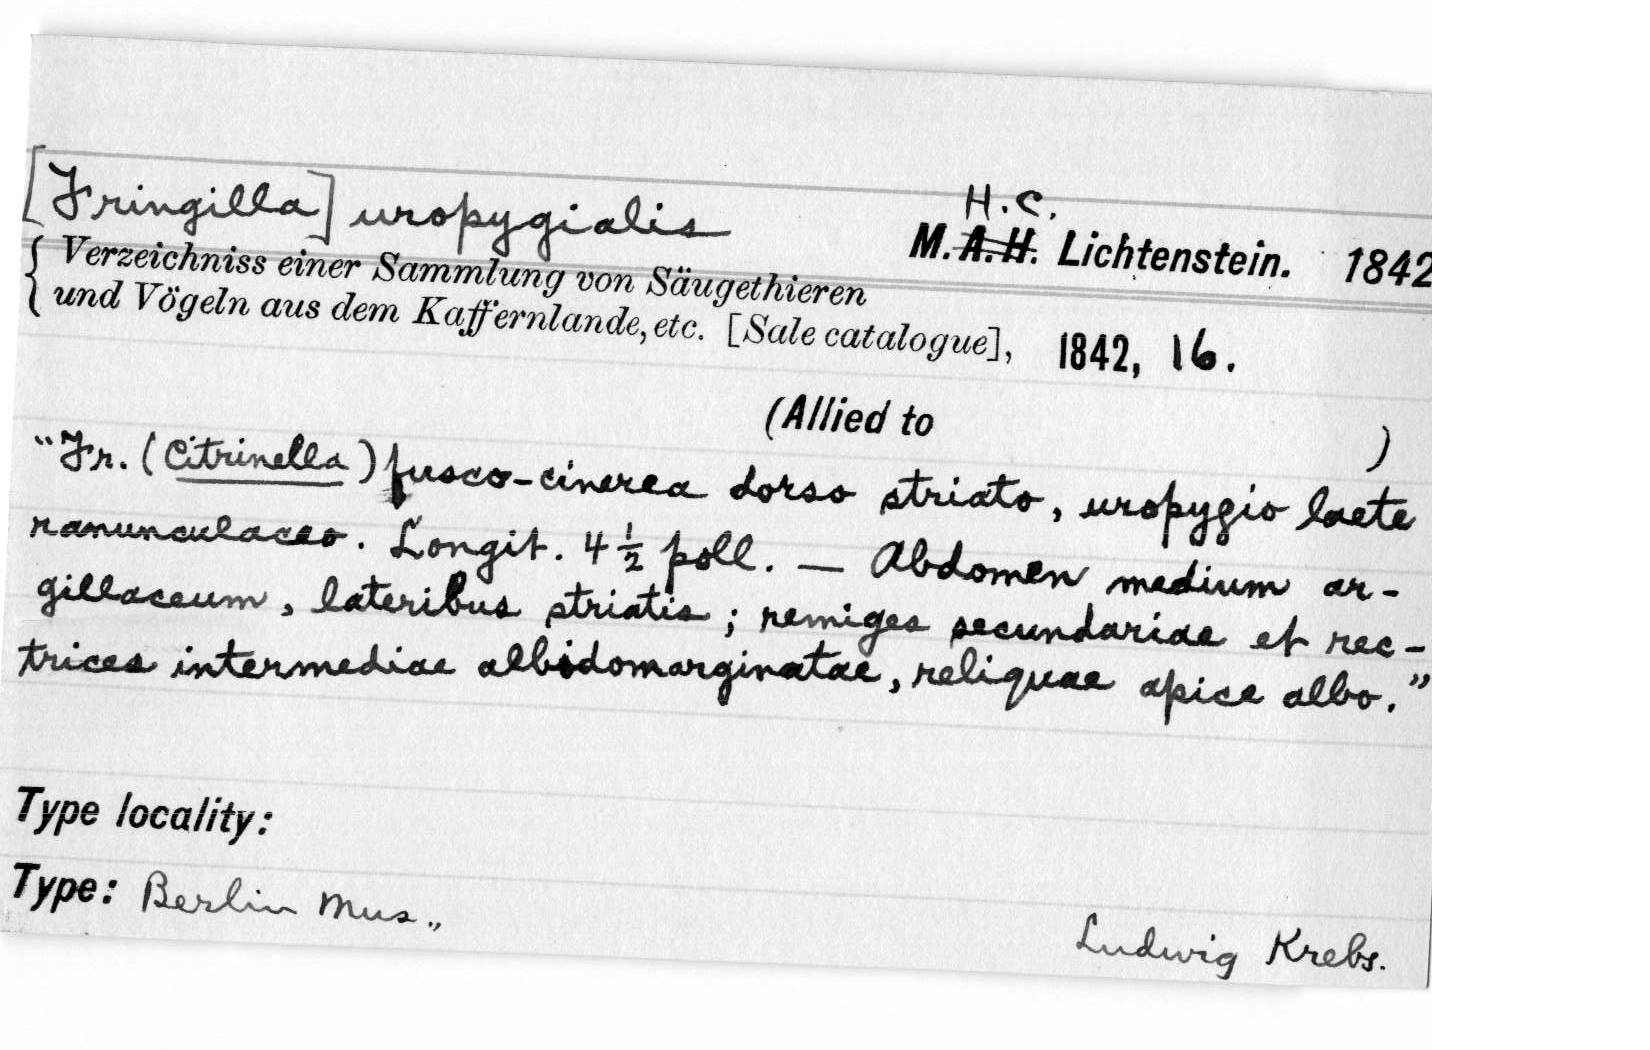 [Fringilla] uropygialis
H.C.
M. A.H. Lichtenstein. 1842
Verzeichniss einer Sammlung von Säugethieren
und Vögeln aus dem Kaffernlande, etc. [Sale catalogue], 1842, 16.
(Allied to )
"Fr. (Citrinella) fusco-cinerea dorso striato, uropygio laete
ranunculaceo. Longit. 4 ½ poll. — Abdomen medium ar-
gillaceum, lateribus striatis; remiges secundariae et rec-
trices intermediae albidomarginatae, reliquae apice albo."
Type locality:
Type: Berlin Mus.,
Ludwig Krebs.